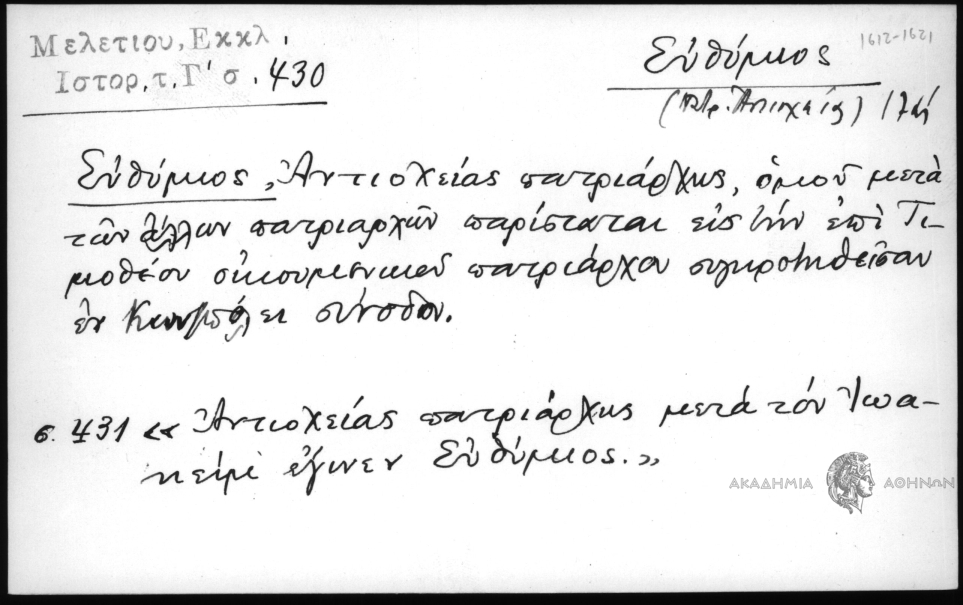 Μελετιου, Εκκλ.
Ιστορ. τ. Γ' σ. 430
1612-1621
Εὐθύμιος
(πτρ. Ἀντιοχείας)
Εὐθύμιος, Ἀντιοχείας πατριάρχης, ὁμοῦ μετὰ
τῶν ἄλλων πατριαρχῶν παρίσταται εἰς τὴν ἐπὶ Τι-
μοθέου οἰκουμενικοῦ πατριάρχου συγκροτηθεῖσαν
ἐν Κων/πόλει σύνοδον.
σ. 431 « Ἀντιοχείας πατριάρχης μετὰ τὸν Ἰωα-
κεὶμ ἔγινεν Εὐθύμιος. »
ΑΚΑΔΗΜΙΑ ΑΘΗΝΩΝ